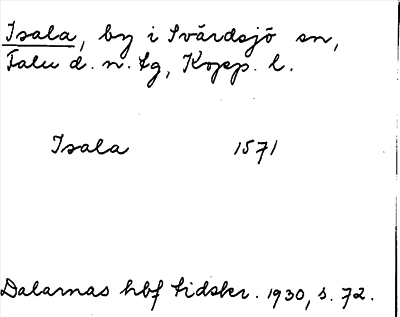 Isala, by i Svärdsjö sn,
Falu d. n. tg, Kopp. l.
Isala 1571
Dalarnas hbf tidskr. 1930, s. 72.